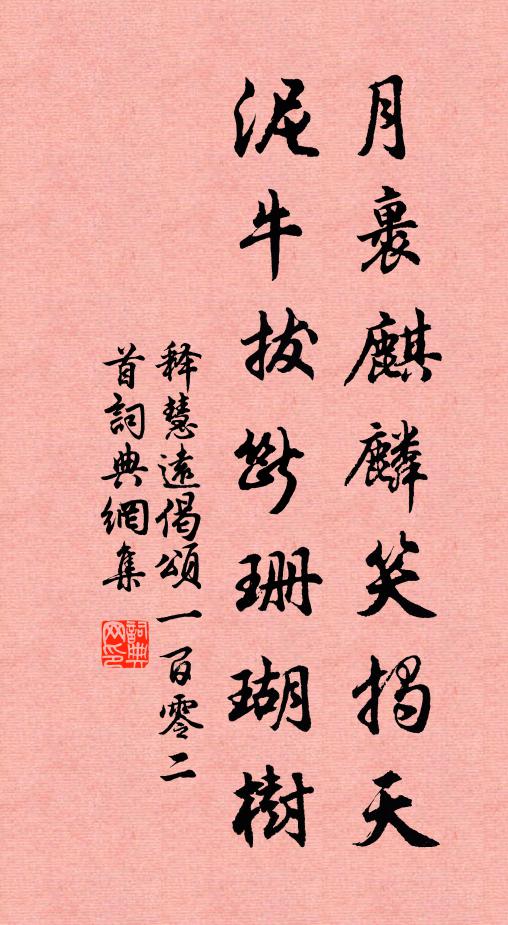 月裏麒麟笑揭天
泥牛拔斷珊瑚樹
釋慧遠偈頌一百零二
首詞典網集
詞典网印